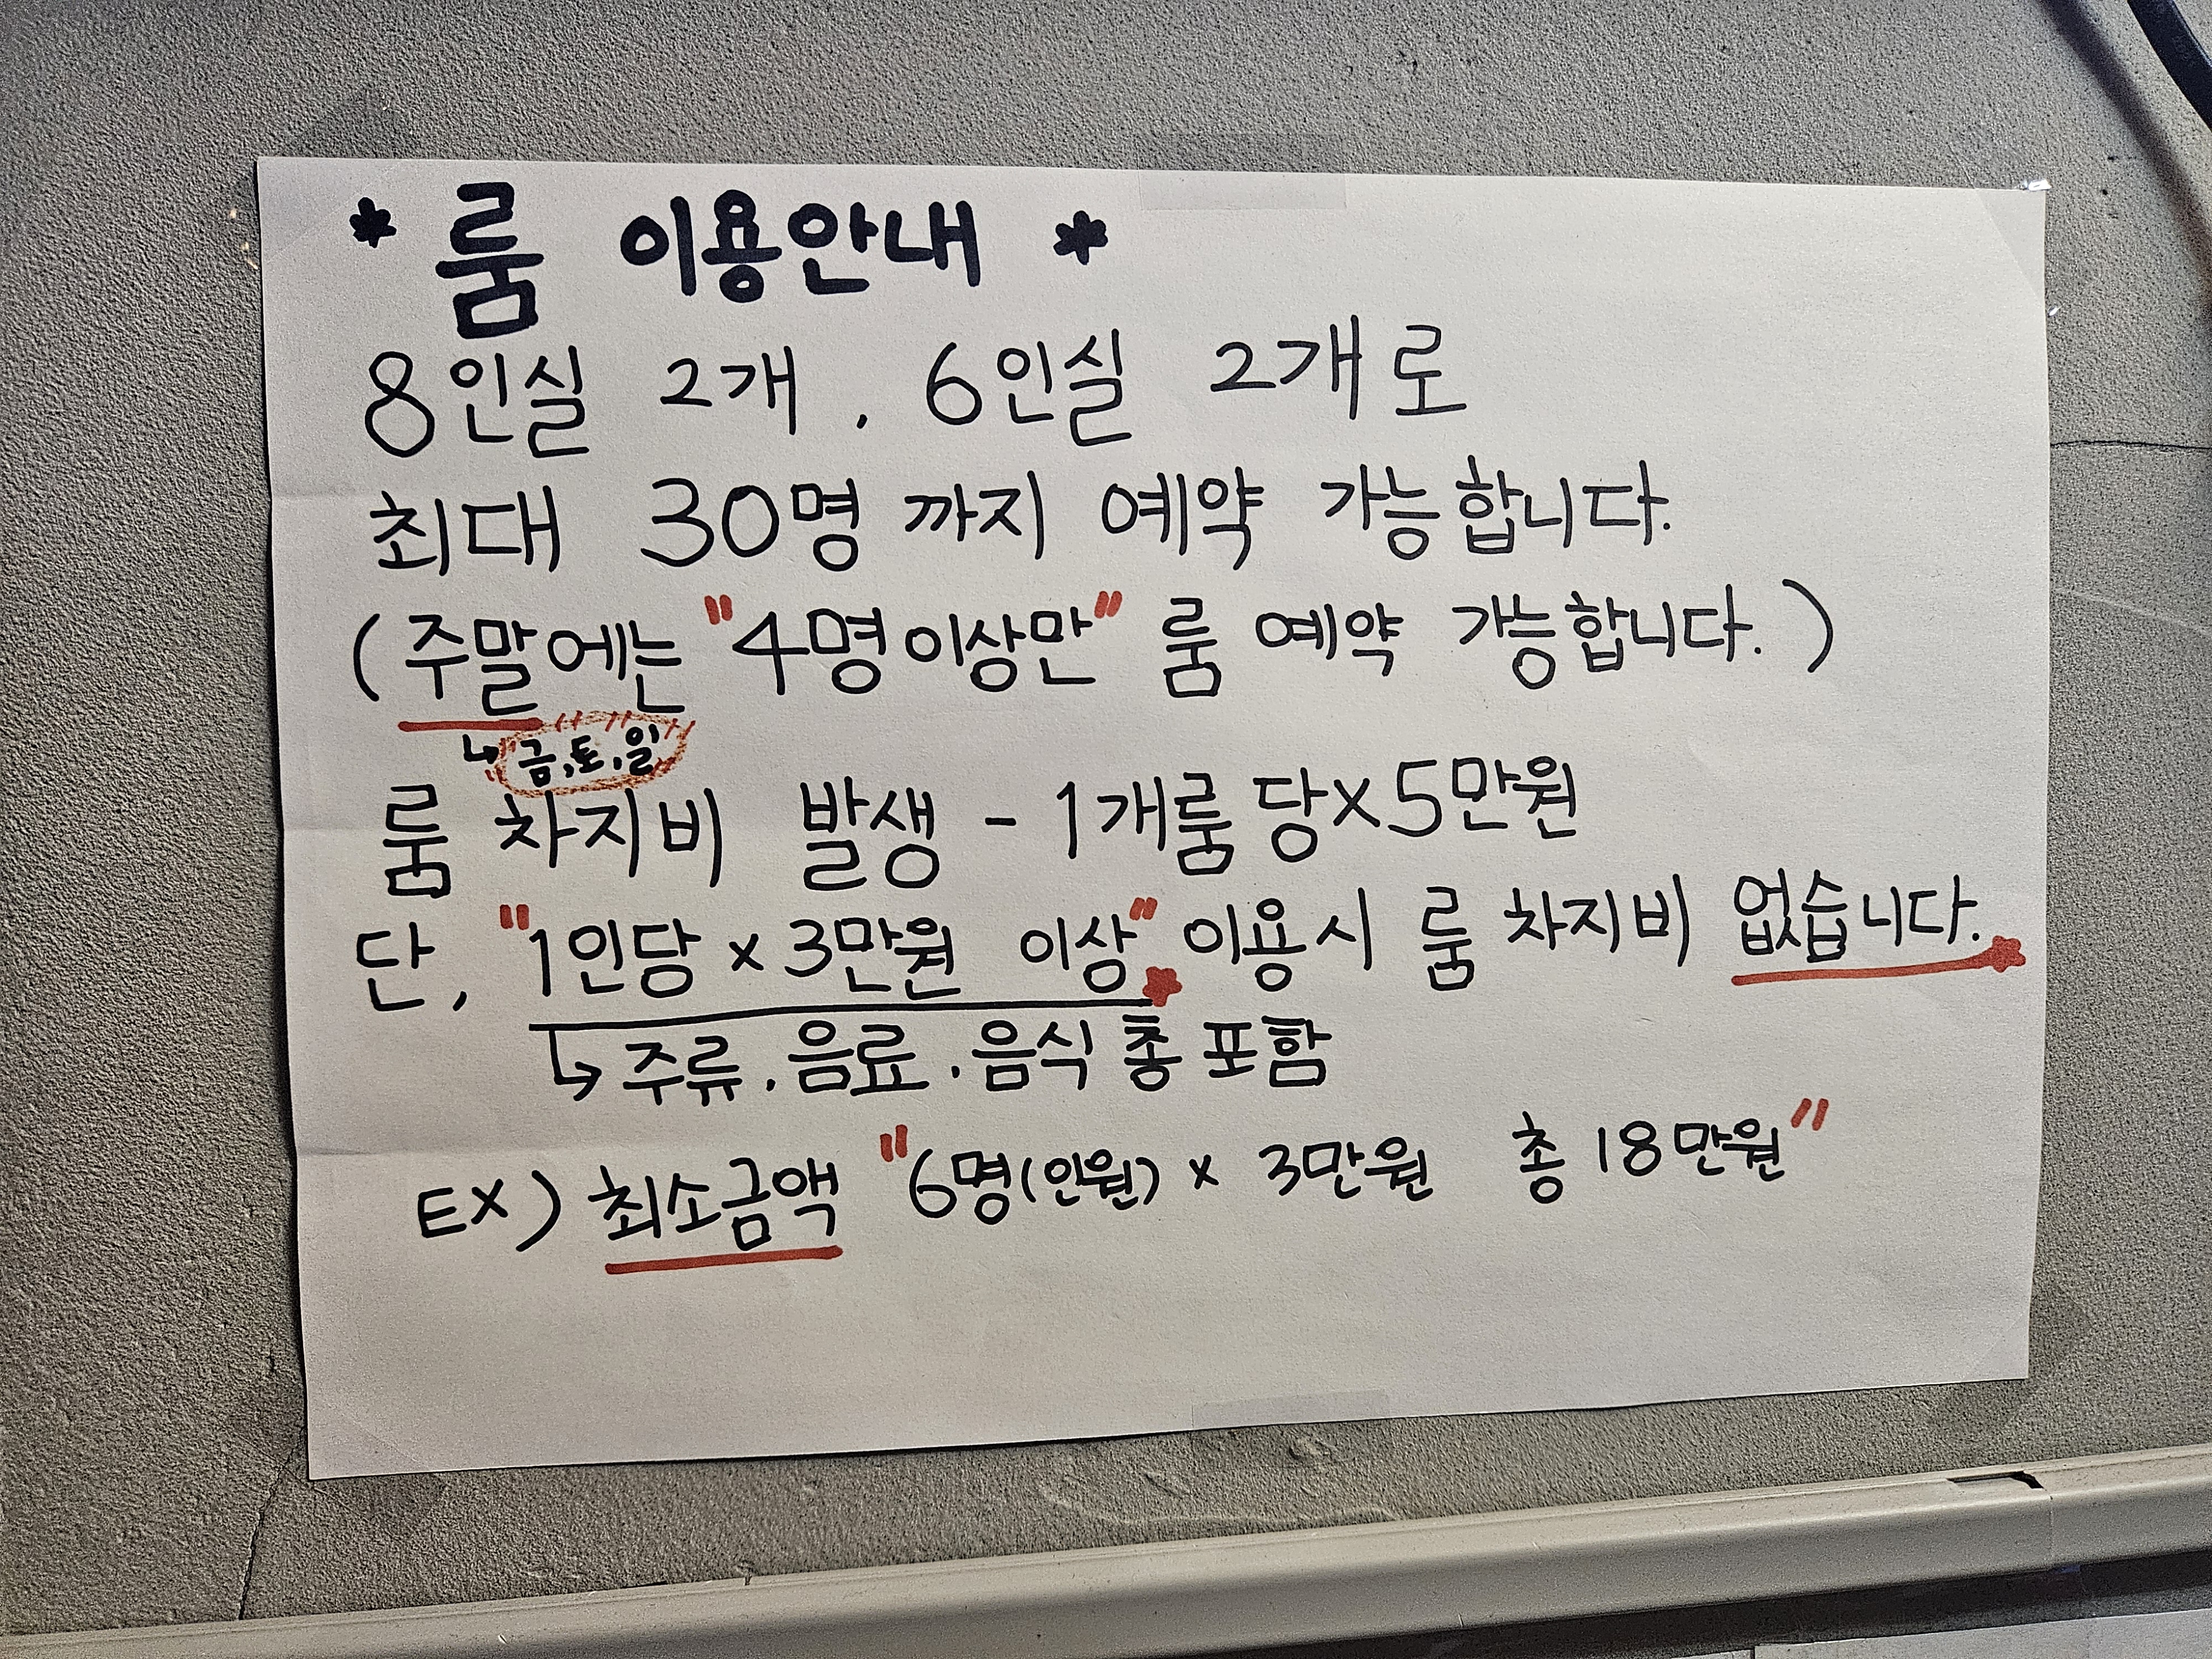 * 룸 이용안내 *
8인실 2개, 6인실 2개로
최대 30명 까지 예약 가능합니다.
(주말에는 "4명이상만" 룸 예약 가능합니다.)
↳ "금,토,일"
룸 차지비 발생 - 1개룸 당x5만원
단, "1인당 x 3만원 이상" 이용시 룸 차지비 없습니다.
↳ 주류, 음료, 음식 총 포함
EX) 최소금액 "6명(인원) x 3만원 총 18만원"